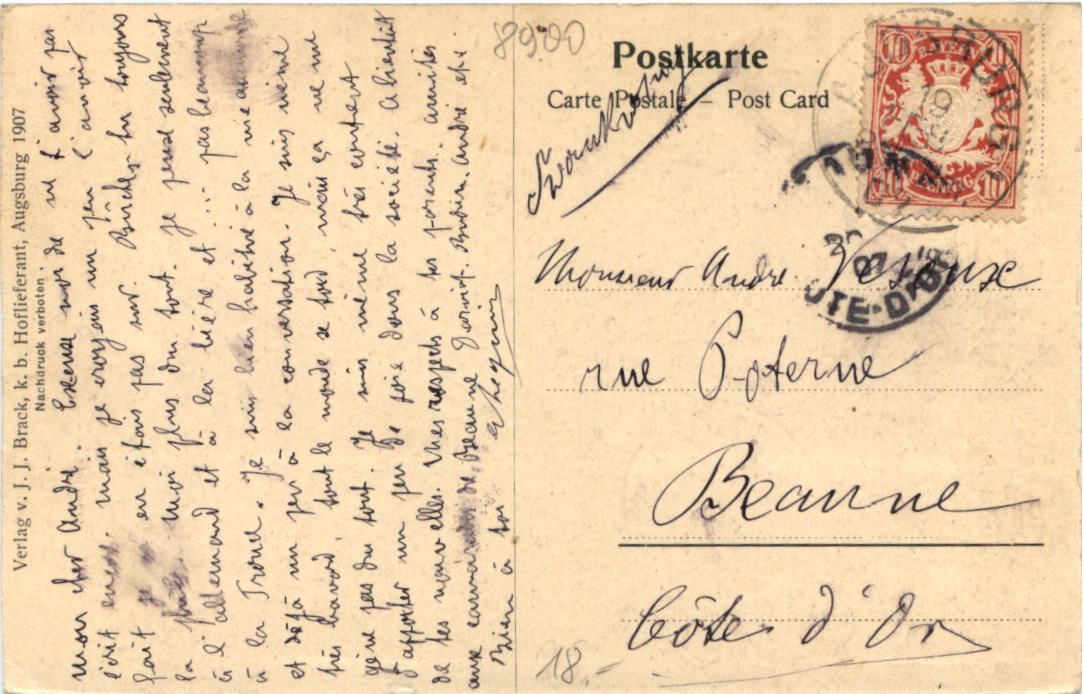 8900
Postkarte
Carte Postale – Post Card
Frankreich
AUGSBURG
10
10
10
BAYERN
CÔTE-D'OR
Monsieur André
rue Poterne
Beaune
Côte d'Or
18.-
Verlag v. J. J. Brack, k. b. Hoflieferant, Augsburg 1907
Nachdruck verboten.
Mon cher André. Excuse moi de ne t'avoir pas
écrit mais je croyais un peu l'avoir
fait je n' en étais pas sur. toujours
là moi plus du tout. je pense seulement
à l'allemand et à la bière et ... pas beaucoup
à la Je suis bien habitué à la vie
et déjà un peu à la conversation. Je suis même
très bavard, tout le monde se tord, mais ça ne me
gêne pas du tout. Je suis même très content
d'apporter un peu de joie dans la société. A bientôt
de tes nouvelles. Mes respects à tes parents. amitiés
aux camarades de Beaune André etc.
Bien à toi